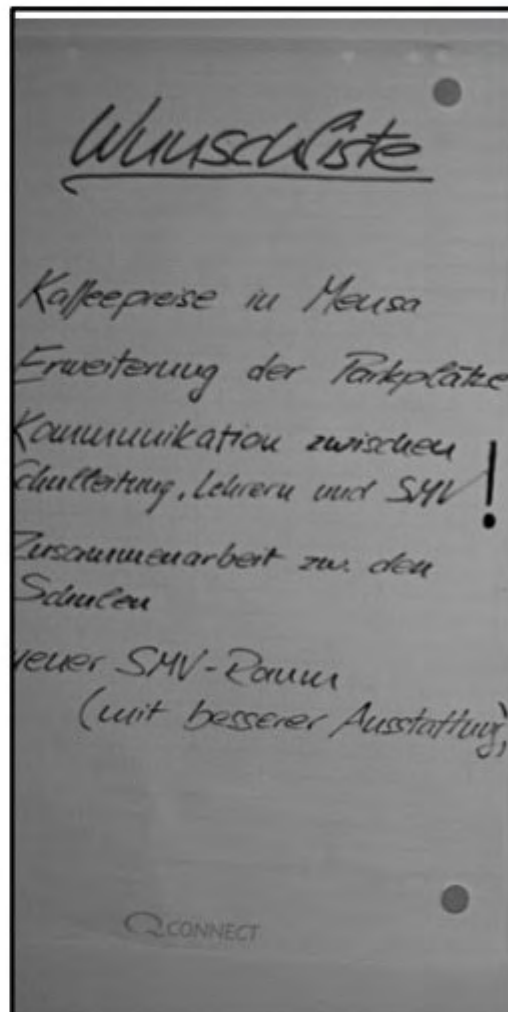 Wunschliste
Kaffeepreise in Mensa
Erweiterung der Parkplätze
Kommunikation zwischen
Schulleitung, Lehrern und SMV !
Zusammenarbeit zw. den
Schulen
neuer SMV-Raum
(mit besserer Ausstattung)
Q CONNECT